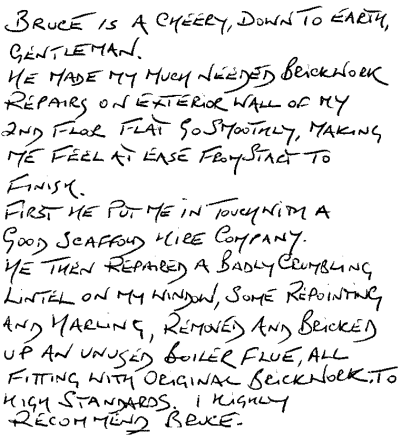 BRUCE IS A CHEERY, DOWN TO EARTH,
GENTLEMAN.
HE MADE MY MUCH NEEDED BRICKWORK
REPAIRS ON EXTERIOR WALL OF MY
2ND FLOR FLAT GO SMOOTHLY, MAKING
ME FEEL AT EASE FROM START TO
FINISH.
FIRST HE PUT ME IN TOUCH WITH A
GOOD SCAFFOLD HIRE COMPANY.
HE THEN REPAIRED A BADLY CRUMBLING
LINTEL ON MY WINDOW, SOME REPOINTING
AND HARLING, REMOVED AND BRICKED
UP AN UNUSED BOILER FLUE, ALL
FITTING WITH ORIGINAL BRICKWORK, TO
HIGH STANDARDS. I HIGHLY
RECOMMEND BRUCE.